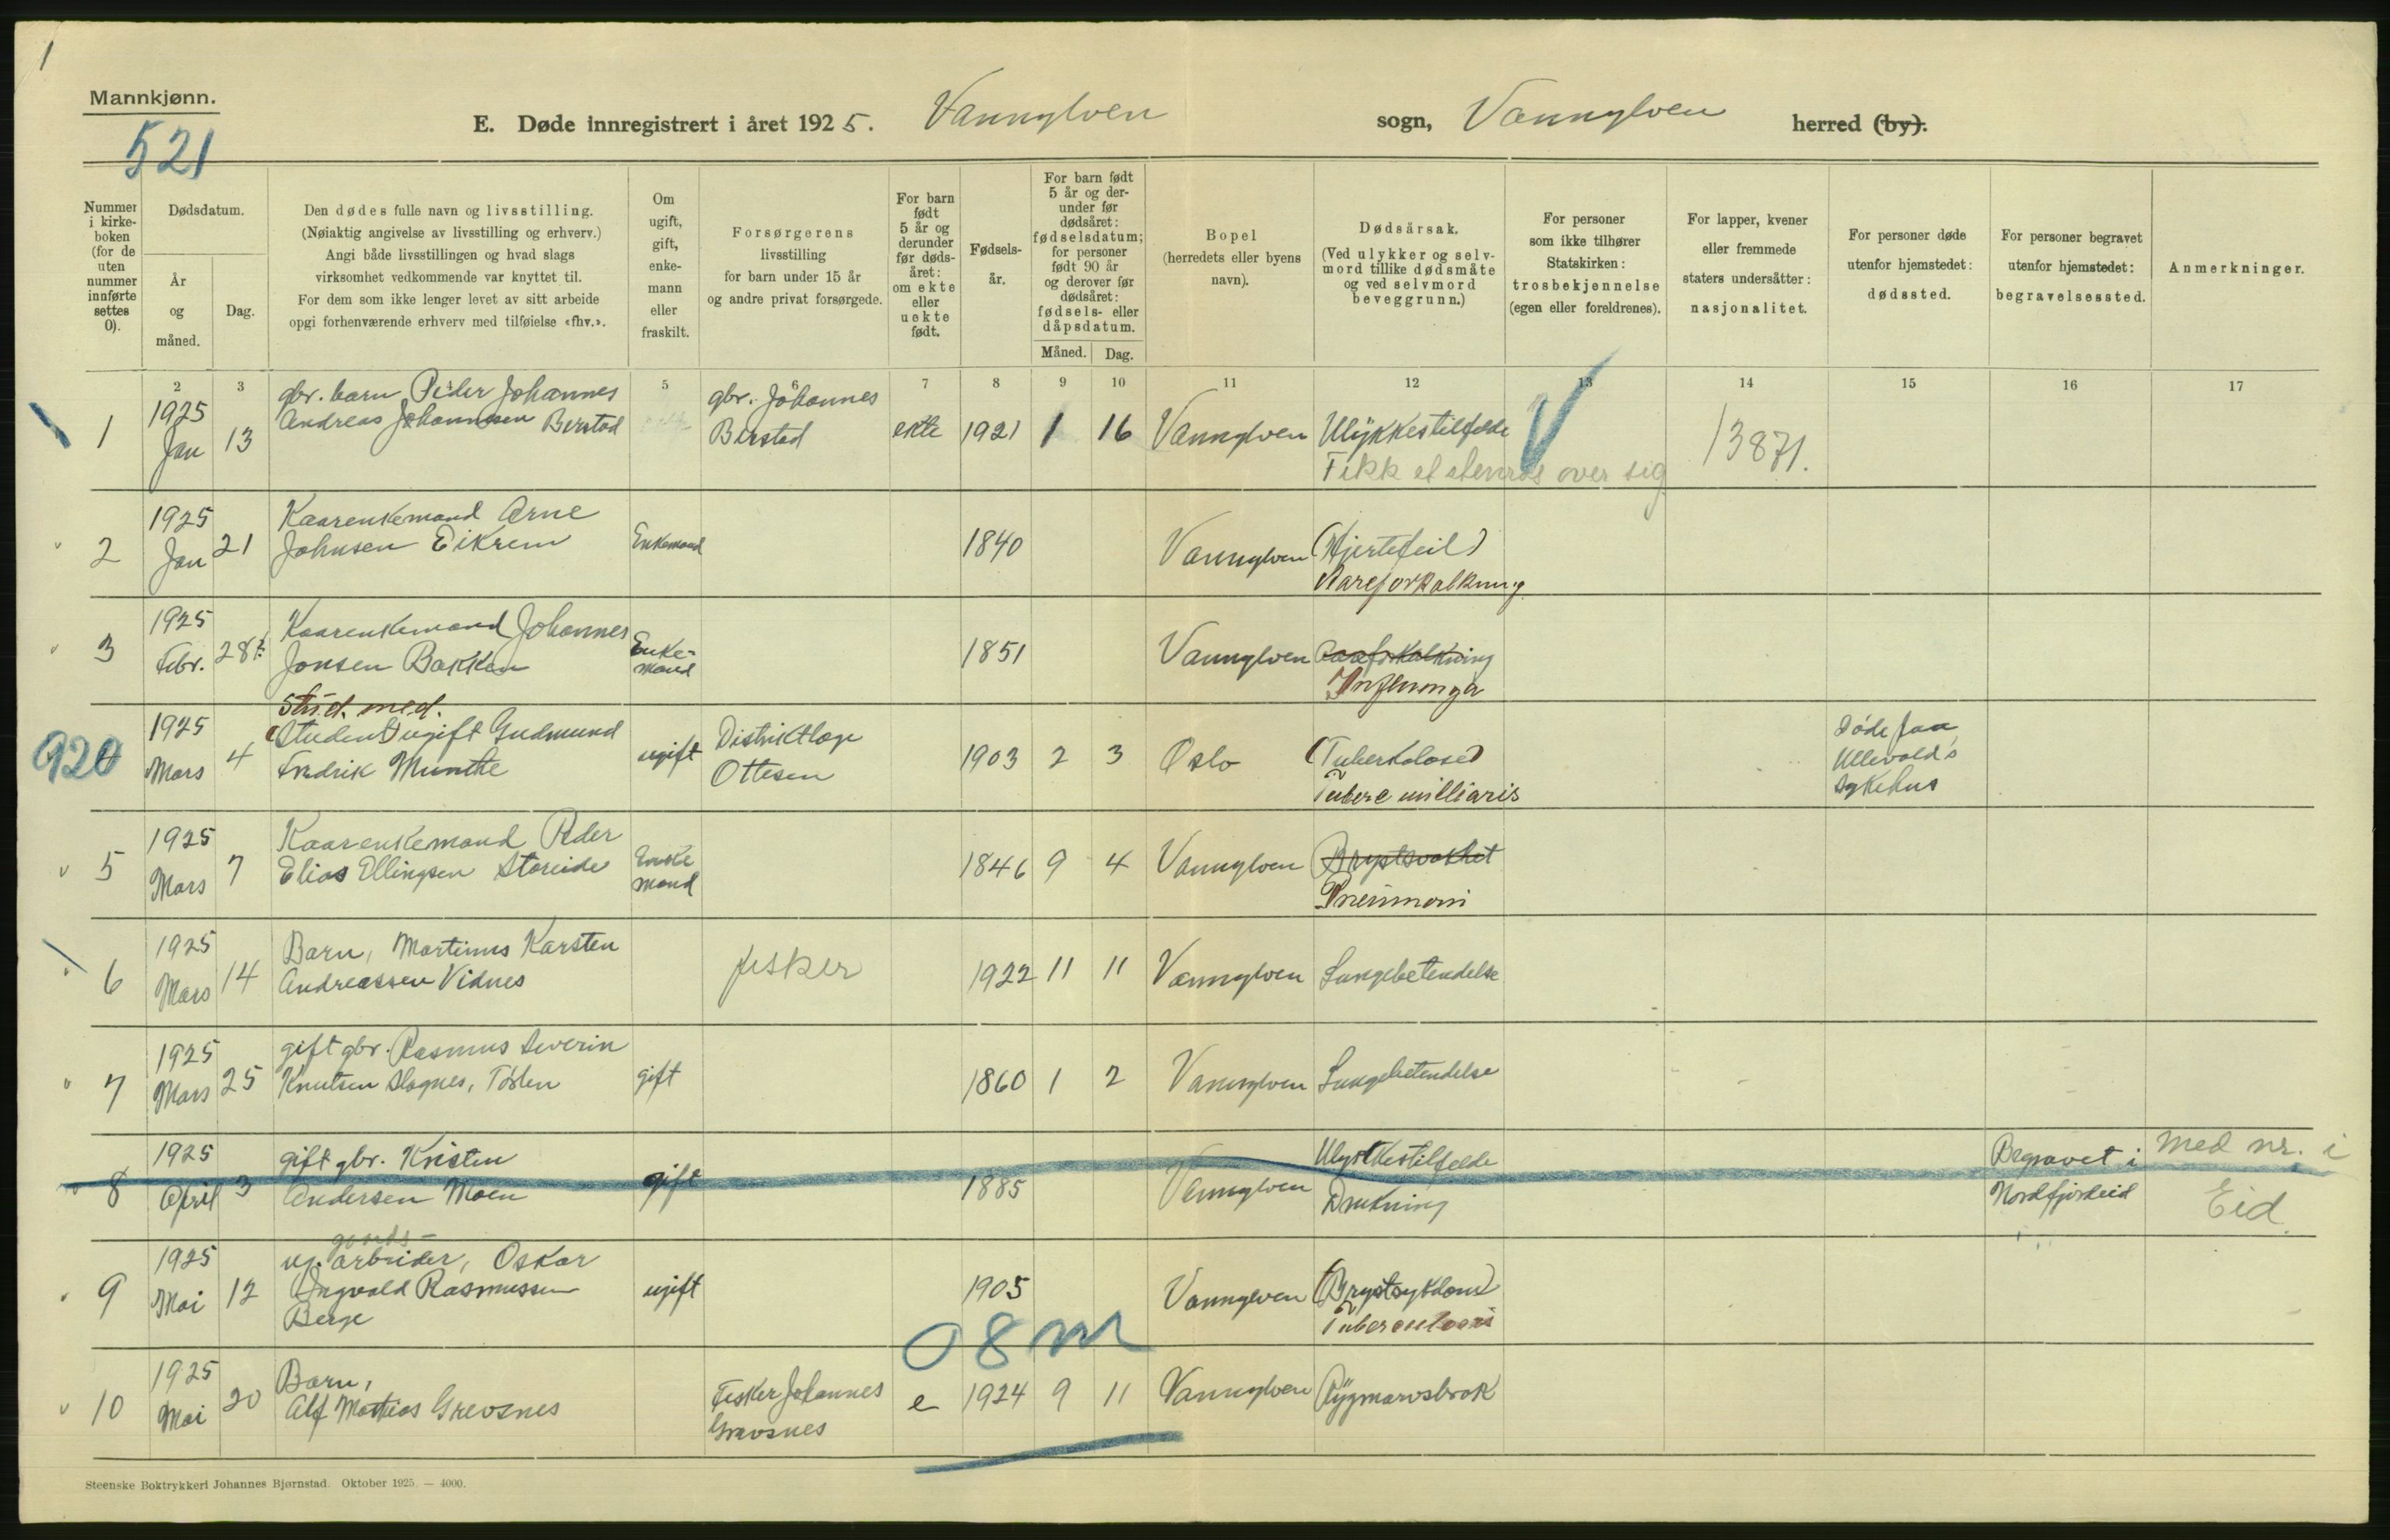 1
Mannkjønn.
521
E. Døde innregistrert i året 1925. Vannylven sogn, Vannylven herred (by).
Nummer i kirkeboken (for de uten nummer innførte settes 0).
Dødsdatum.
År og måned.
Dag.
Den dødes fulle navn og livsstilling.
(Nøiaktig angivelse av livsstilling og erhverv.)
Angi både livsstillingen og hvad slags
virksomhet vedkommende var knyttet til.
For dem som ikke lenger levet av sitt arbeide
opgi forhenværende erhverv med tilføielse «fhv.».
Om ugift, gift, enkemann eller fraskilt.
Forsørgerens
livsstilling
for barn under 15 år
og andre privat forsørgede.
For barn født 5 år og derunder før dødsåret: om ekte eller uekte født.
Fødselsår.
For barn født 5 år og derunder før dødsåret: fødselsdatum; for personer født 90 år og derover før dødsåret: fødsels- eller dåpsdatum.
Måned.
Dag.
Bopel
(herredets eller byens
navn).
Dødsårsak.
(Ved ulykker og selvmord tillike dødsmåte og ved selvmord beveggrunn.)
For personer
som ikke tilhører
Statskirken:
trosbekjennelse
(egen eller foreldrenes).
For lapper, kvener
eller fremmede
staters undersåtter:
nasjonalitet.
For personer døde
utenfor hjemstedet:
dødssted.
For personer begravet
utenfor hjemstedet:
begravelsessted.
Anmerkninger.
2 3 4 5 6 7 8 9 10 11 12 13 14 15 16 17
1 1925 Jan 13 gbr. barn Peder Johannes
Andreas Johannesen Berstad
gbr. Johannes
Berstad
ekte 1921 1 16 Vannylven Ulykkestilfelde
Fikk et stenras over sig
13871.
2 1925 Jan 21 Kaarenkemand Arne
Johnsen Eikrem
Enkemand 1840 Vannylven (Hjertefeil)
Aareforkalkning
3 1925 Febr. 28 Kaarenkemand Johannes
Jonsen Bakken
Enke-
mand
1851 Vannylven Aareforkalkning
Influenza
920
4 1925 Mars 4 Stud. med.
(Student) ugift Gudmund
Fredrik Munthe
ugift Distriktlæge
Ottesen
1903 2 3 Oslo (Tuberkolose)
Tuberc milliaris
Døde paa
Ullevold's
sykehus
5 1925 Mars 7 Kaarenkemand Peder
Elias Ellingsen Storeide
Enke
mand
1846 9 4 Vannylven Brystsvakhet
Pneumoni
6 1925 Mars 14 Barn, Martinus Karsten
Andreassen Vidnes
fisker 1922 11 11 Vannylven Lungebetendelse
7 1925 Mars 25 gift gbr. Rasmus Severin
Knutsen Slagnes,
gift 1860 1 2 Vannylven Lungebetendelse
8 1925 April 3 gift gbr. Kristen
Andersen Moen
gift 1885 Vannylven Ulykkestilfelde
Drukning
Begravet i
Nordfjordeid
Med nr. i
Eid
9 1925 Mai 12 gaards-
ug. arbeider, Oskar
Ingvald Rasmussen
Berge
ugift 1905 Vannylven (Brystsykdom)
Tuberculosis
08 m
10 1925 Mai 20 Barn,
Alf Mathias Grevsnes
Fisker Johannes
Grevsnes
e 1924 9 11 Vannylven Rygmarvsbrok
Steenske Boktrykkeri Johannes Bjørnstad. Oktober 1925. — 4000.